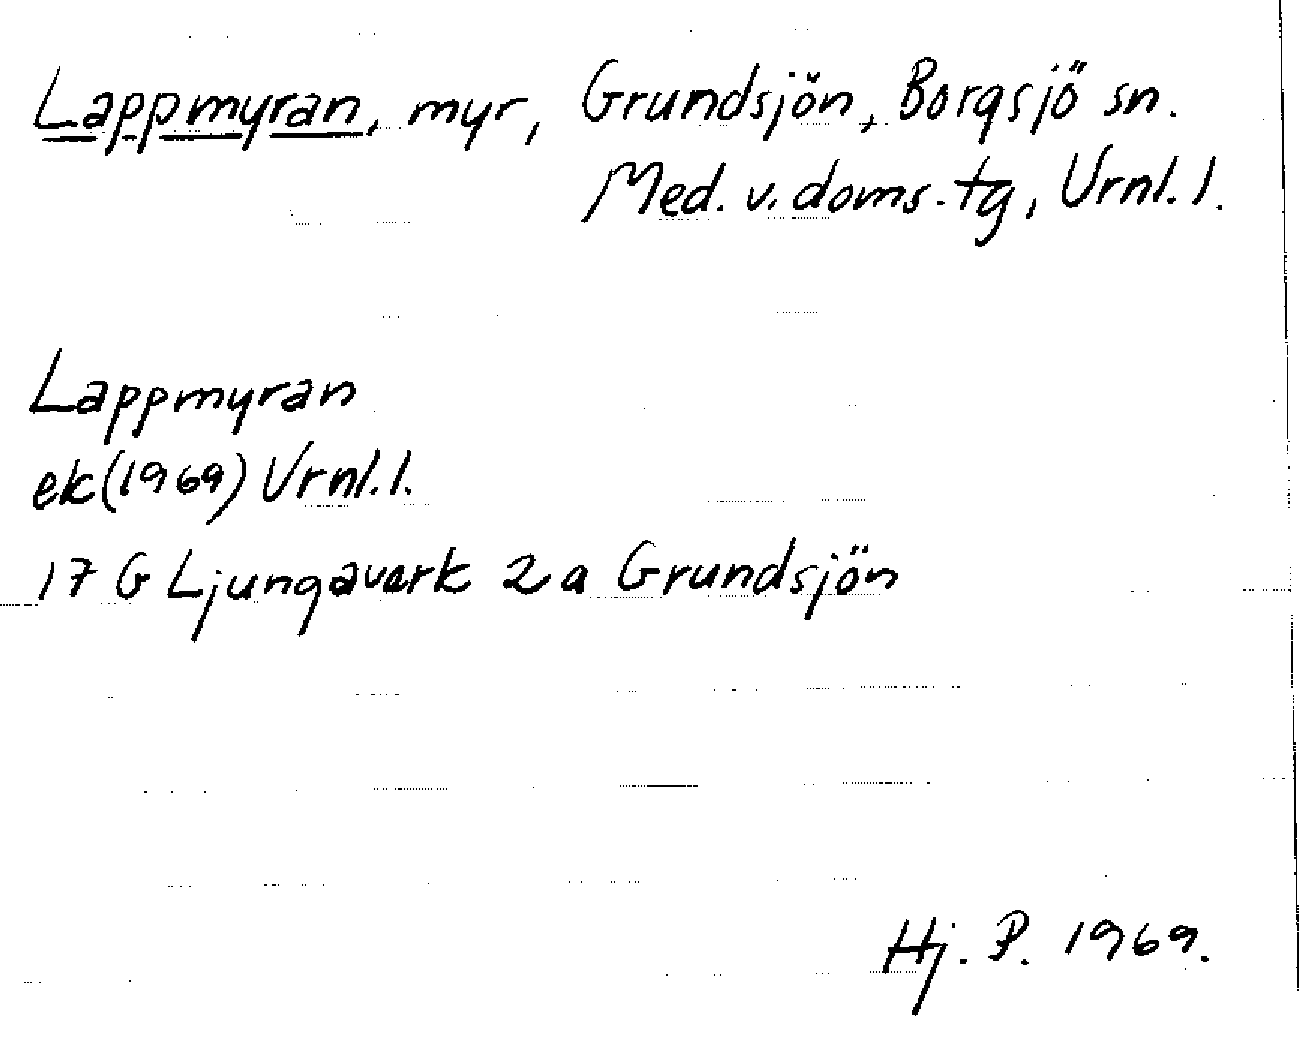 Lappmyran, myr, Grundsjön, Borgsjö sn.
Med. v. doms. tg, Vrnl. l.
Lappmyran
ek (1969) Vrnl. l.
17 G Ljungaverk 2 a Grundsjön
Hj. P. 1969.